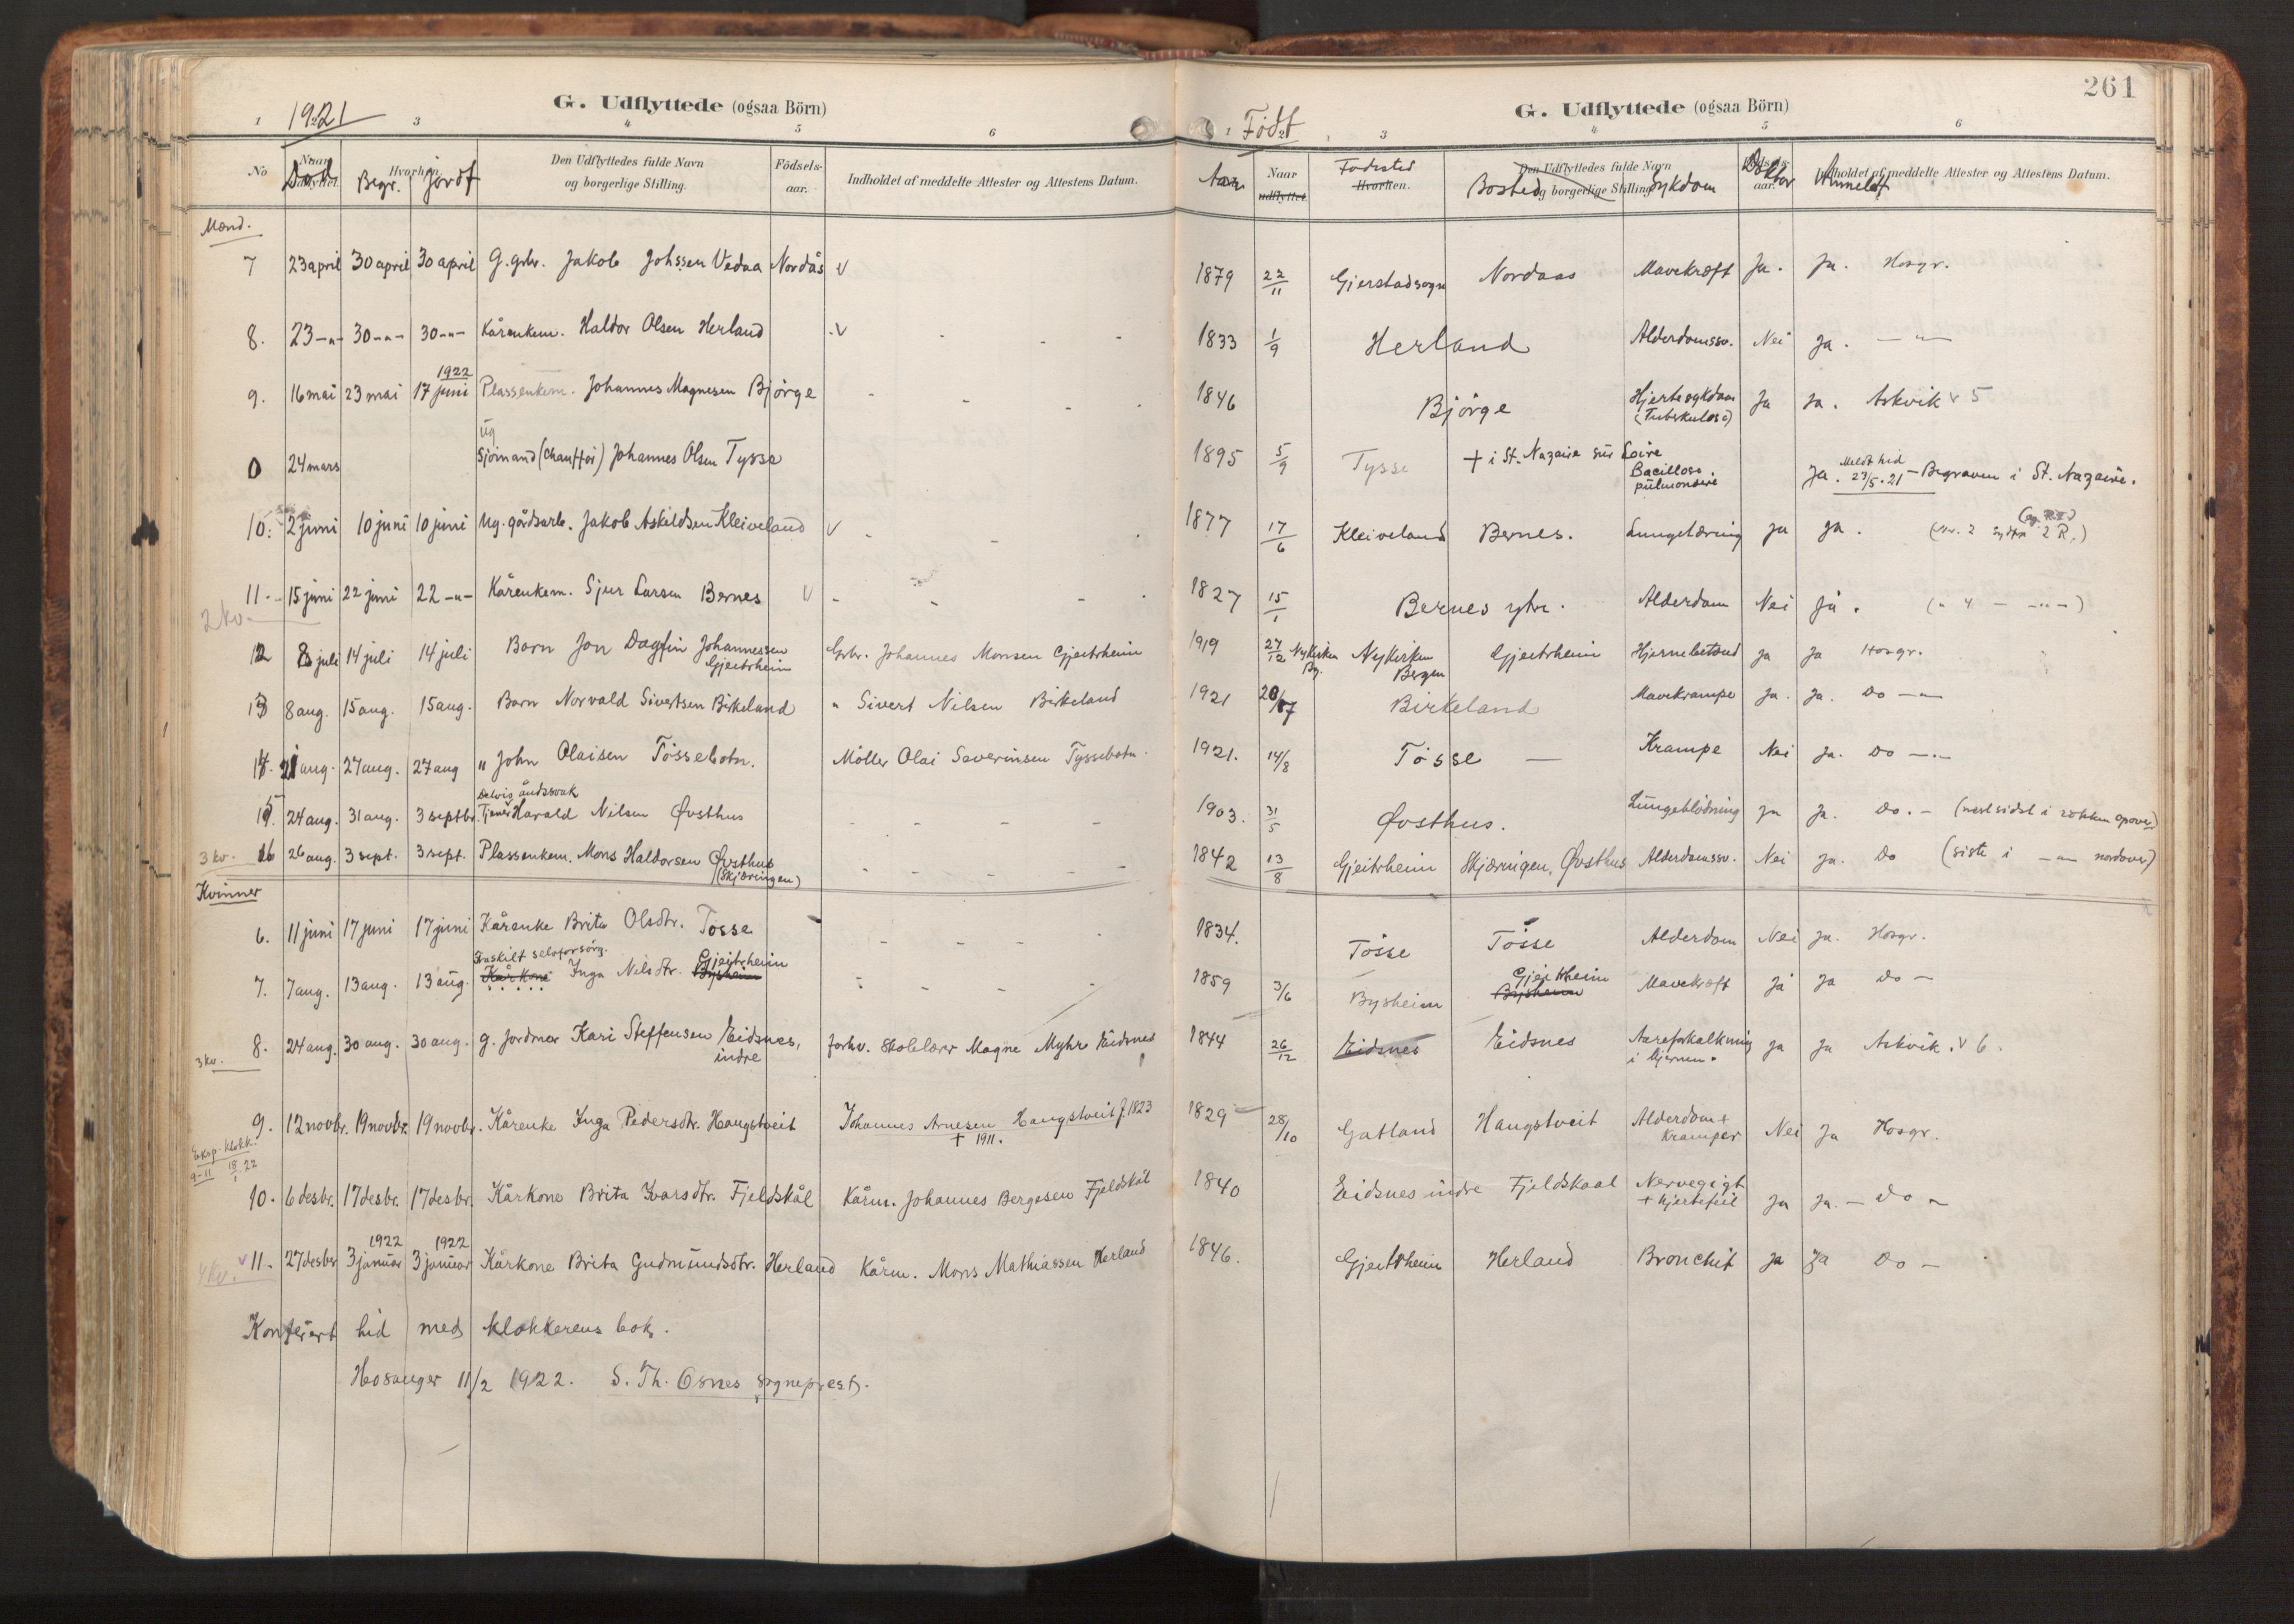 261
1921
G. Udflyttede (ogsaa Börn)
Født
G. Udflyttede (ogsaa Börn)
1 2 3 4 5 6
1 2 3 4 5 6
No Naar udflyttet. Hvorhen. Den Udflyttedes fulde Navn og borgerlige Stilling. Födsels-aar. Indholdet af meddelte Attester og Attestens Datum.
Död Begr. jordf
Naar udflyttet. Hvorhen. Den Udflyttedes fulde Navn og borgerlige Stilling. Födsels-aar. Indholdet af meddelte Attester og Attestens Datum.
Aar Fødested Bosted Sykdom Doktor Anmeldt
Mænd.
7 23 april 30 april 30 april G.grbr. Jakob Johssen Vedaa Nordås v 1879 22/11 Gjerstadsogn Nordaas Mavekræft Ja. Ja. Hosgr.
8. 23 -"- 30 -"- 30 -"- Kårenkem. Haldor Olsen Herland v 1833 1/9 Herland Alderdomssv. Nei Ja. -"-
1922
9. 16 mai 23 mai 17 juni Plassenkem. Johannes Magnesen Bjørge 1846 Bjørge Hjertesykdom (Tuberkulose) Ja Ja. Askvik v 5
ug
0 24 mars Sjømand (chauffør) Johannes Olsen Tysse 1895 5/9 Tysse + i St. Nazaire sur Loire Bacillose pulmonaire Ja. Meldt hid 23/5.21 - Begraven i St. Nazaire.
10. 2 juni 10 juni 10 juni Ug. gårdsarb. Jakob Askildsen Kleiveland v 1877 17/6 Kleiveland Bernes. Lungetæring Ja Ja. (nr. 2 2 R.)
11. 15 juni 22 juni 22 -"- Kårenkem. Sjur Larsen Bernes v 1827 15/1 Bernes ytre. Alderdom Nei Ja. (" 4 - -"-)
2 kv.
12 8 juli 14 juli 14 juli Barn Jon Dagfin Johannessen Gjeitrheim Grbr. Johannes Monsen Gjeitrheim 1919 27/12 Nykirken By. Nykirken Bergen Gjeitrheim Hjernebetend Ja Ja Hosgr.
13 8 aug. 15 aug. 15 aug. Barn Norvald Sivertsen Birkeland " Sivert Nilsen Birkeland 1921 20/7 Birkeland Mavekrampe Ja. Ja. Do -"-
14. 21 aug. 27 aug. 27 aug " John Olaisen Tössebotn. Möller Olai Severinsen Tyssebotn. 1921. 14/8 Tösse - Krampe Nei Ja. Do -"-
Delvis åndssvak
15. 24 aug. 31 aug. 3 septbr. Tjener Harald Nilsen Øvsthus 1903. 31/5 Øvsthus. Lungeblödning Ja Ja. Do. - (nestsidst i rekken opover)
3 kv. 16 26 aug. 3 sept. 3 sept. Plassenkem. Mons Haldorsen Øvsthus (Skjæringen) 1842 13/8 Gjeitrheim Skjæringen, Øvsthus Alderdomssv. Nei Ja. Do (siste i -"- nordover)
Kvinner
6. 11 juni 17 juni 17 juni Kårenke Brita Olsdtr. Tösse 1834. Tösse Tösse Alderdom Nei Ja. Hosgr.
Fraskilt selvforsörg. Gjeitrheim
7. 7 aug. 13 aug. 13 aug. Kårkone Inga Nilsdtr. Bysheim 1859 3/6 Bysheim Gjeitrheim Bysheim Mavekræft Ja Ja Do -
3 kv. 8. 24 aug. 30 aug. 30 aug. g. jordmor Kari Steffensen Eidsnes, indre forhv. skolelærer Magne Myhre Eidsnes 1844 26/12 Eidsnes Eidsnes Aareforkalkning i hjernen. Ja Ja Askvik. v 6.
9. 12 novbr. 19 novbr. 19 novbr. Kårenke Inga Pedersdtr. Haugstveit Johannes Arnesen Haugstveit f. 1823 + 1911. 1829 28/10 Gatland Haugstveit Alderdom + Kramper Nei Ja Hosgr.
Eksp. klokk. 9-11 18/1 22
10. 6 desbr. 17 desbr. 17 desbr. Kårkone Brita Ivarsdtr. Fjeldskål Kårm. Johannes Bergesen Fjeldskål 1840 Eidsnes indre Fjeldskaal Nervegigt + hjertefeil Ja Ja. - Do -
1922 1922
4 kv. v 11. 27 desbr 3 januar 3 januar Kårkone Brita Gudmundsdtr. Herland Kårm. Mons Mathiassen Herland 1846. Gjeitrheim Herland Bronchit Ja Ja Do -
Konferert hid med klokkerens bok.
Hosanger 11/2 1922. S. Th. Osnes sogneprest.